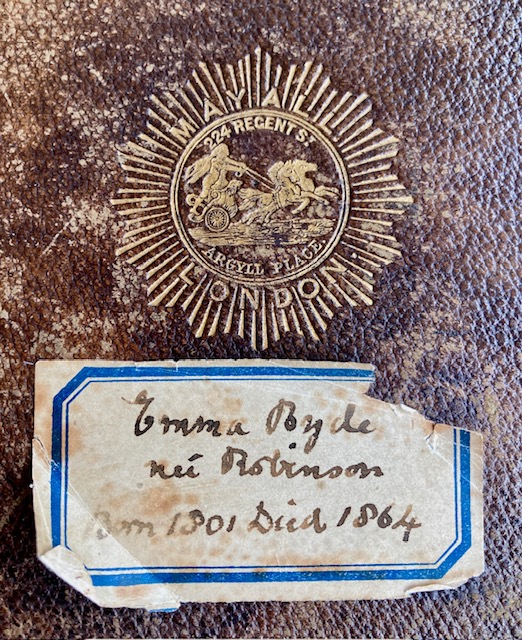 MAYALL
224 REGENT ST
ARGYLL PLACE
LONDON.
Emma Ryde
neé Robinson
Born 1801 Died 1864